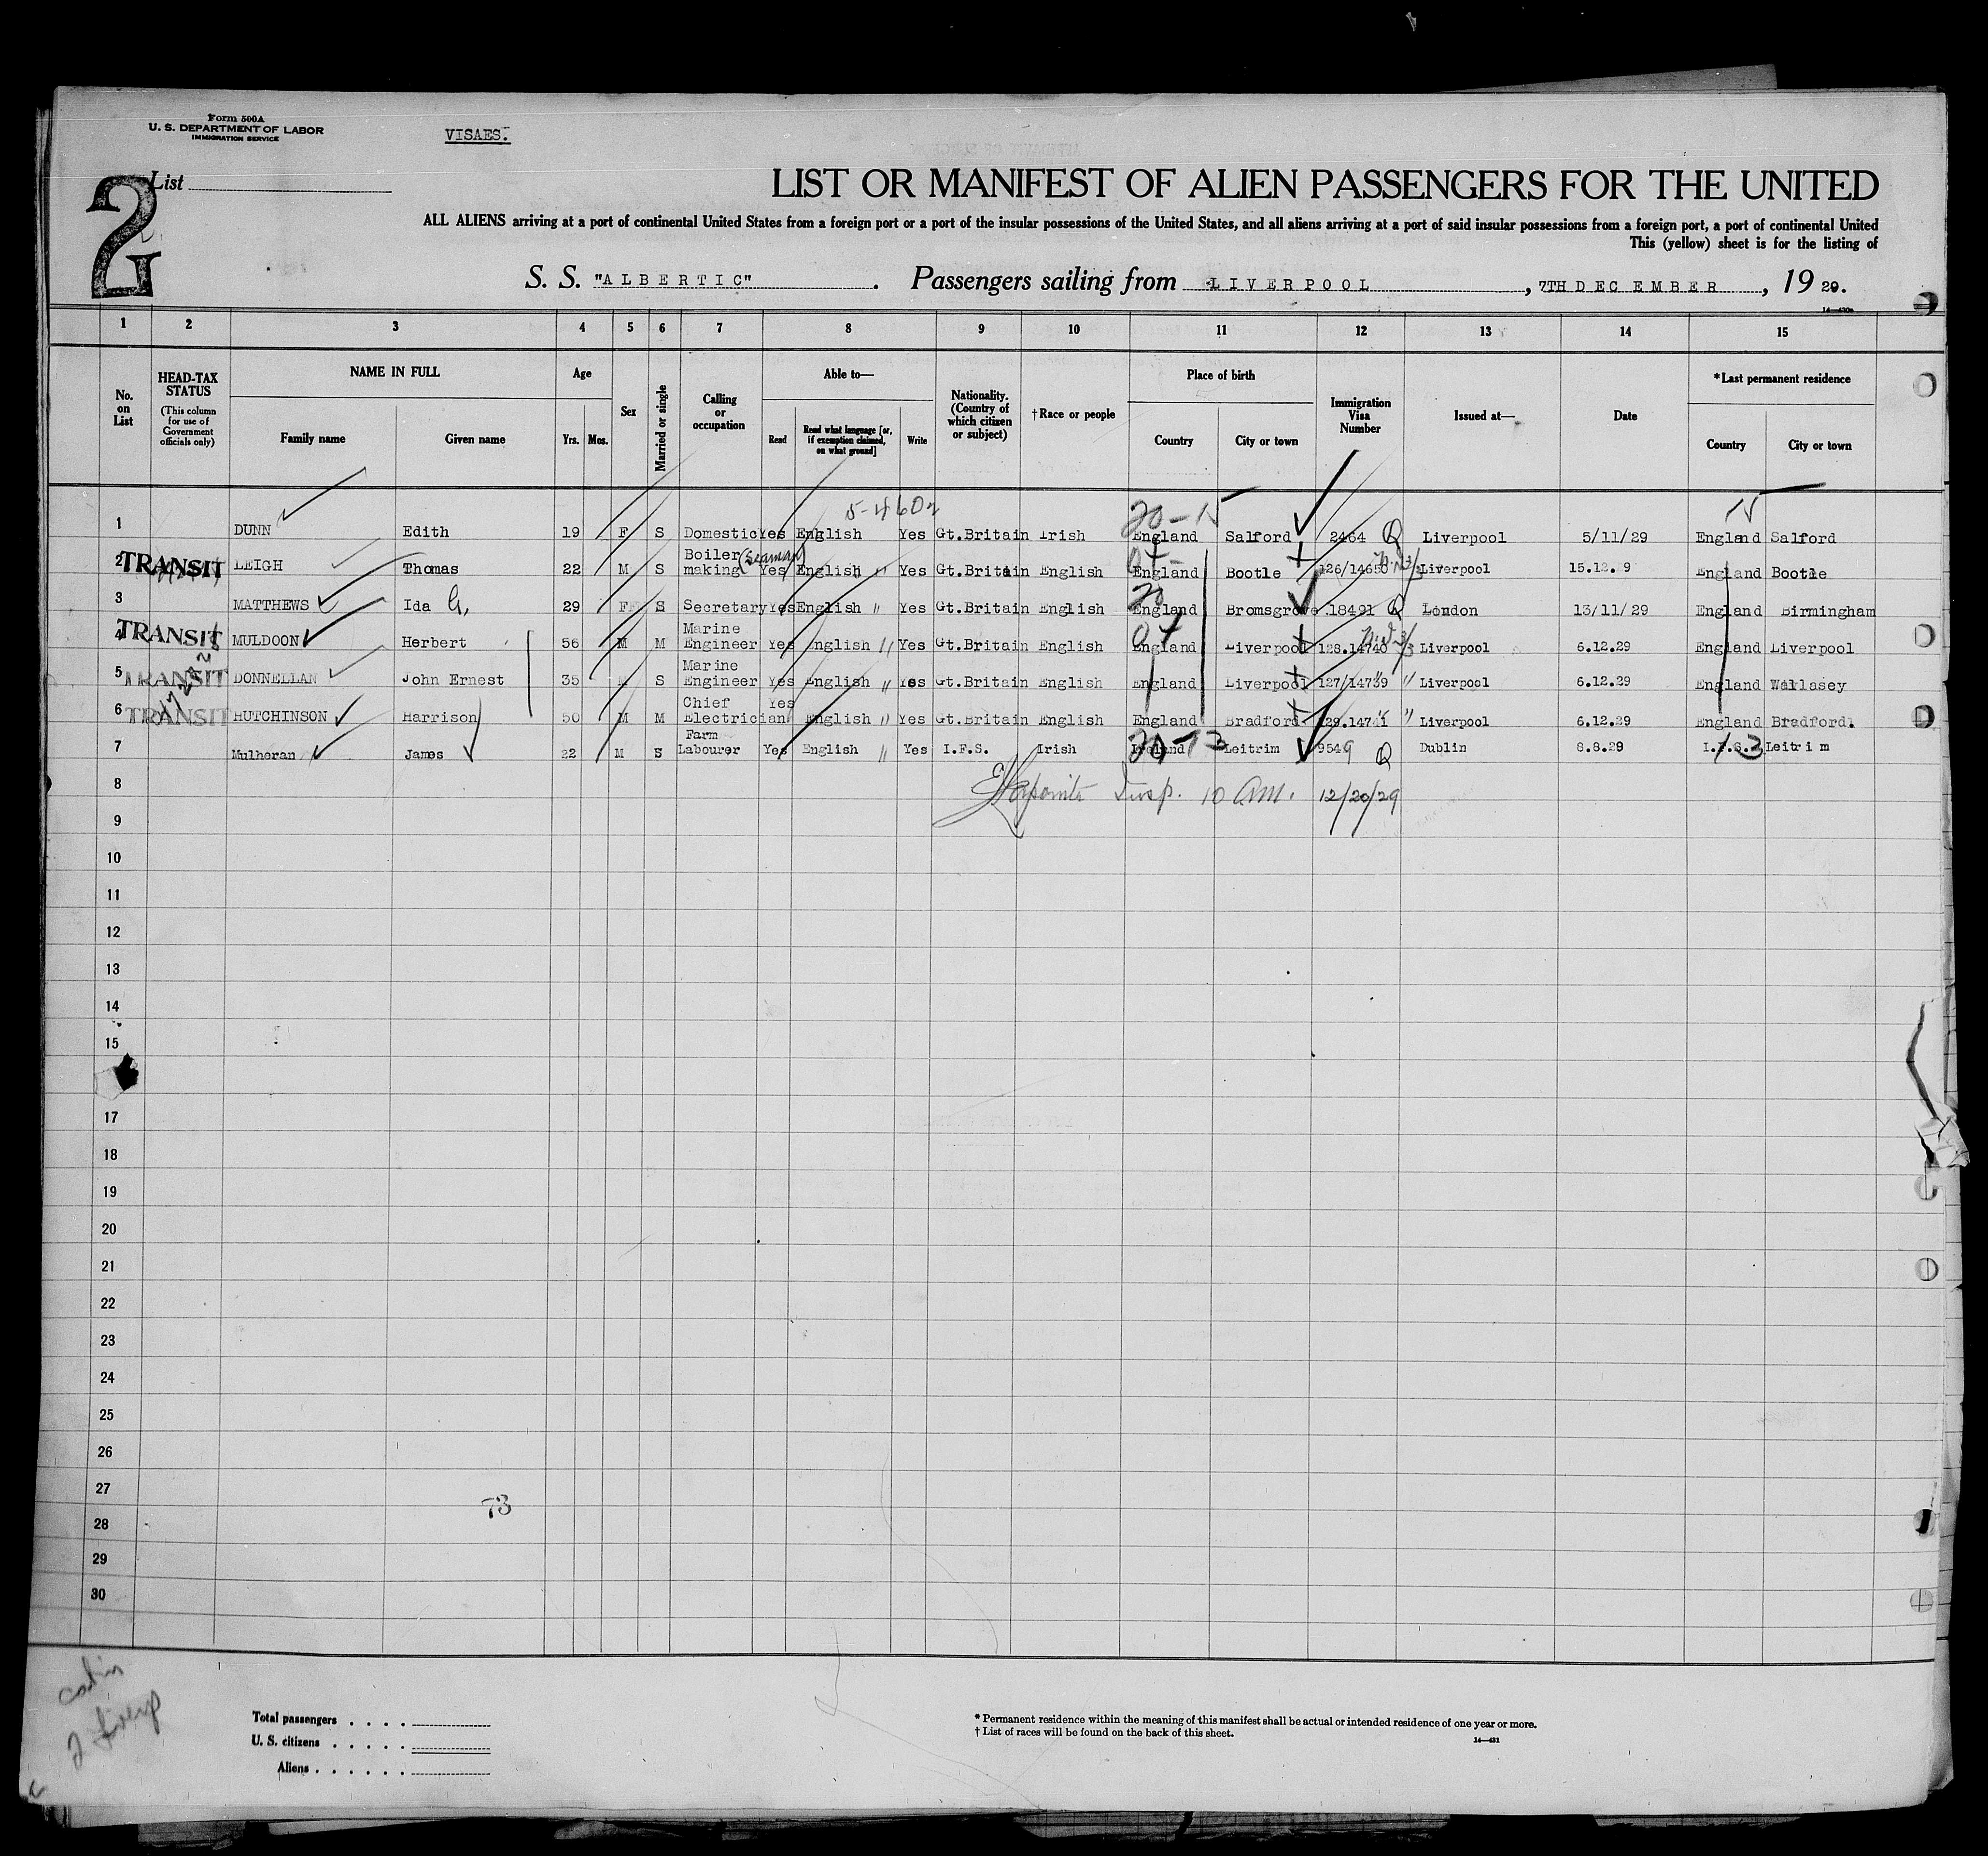 Form 500A
U. S. DEPARTMENT OF LABOR
IMMIGRATION SERVICE
VISAES.
2
List
LIST OR MANIFEST OF ALIEN PASSENGERS FOR THE UNITED
ALL ALIENS arriving at a port of continental United States from a foreign port or a port of the insular possessions of the United States, and all aliens arriving at a port of said insular possessions from a foreign port, a port of continental United
This (yellow) sheet is for the listing of
S. S. "ALBERTIC". Passengers sailing from LIVERPOOL, 7TH DECEMBER, 1929.
1 2 3 4 5 6 7 8 9 10 11 12 13 14 15
No. on List
HEAD-TAX STATUS (This column for use of Government officials only)
NAME IN FULL
Family name Given name
Age
Yrs. Mos.
Sex
Married or single
Calling or occupation
Able to—
Read Read what language [or, if exemption claimed, on what ground] Write
Nationality. (Country of which citizen or subject)
†Race or people
Place of birth
Country City or town
Immigration Visa Number
Issued at—
Date
*Last permanent residence
Country City or town
1 DUNN Edith 19 F S Domestic Yes English Yes Gt.Britain Irish England Salford 2464 Q Liverpool 5/11/29 England Salford
2 TRANSIT LEIGH Thomas 22 M S Boiler making (Seaman) Yes English " Yes Gt.Britain English England Bootle 126/14650 Liverpool 15.12. 9 England Bootle
3 MATTHEWS Ida G, 29 F S Secretary Yes English " Yes Gt.Britain English England Bromsgrove 18491 Q London 13/11/29 England Birmingham
4 TRANSIT MULDOON Herbert 56 M M Marine Engineer Yes English " Yes Gt.Britain English England Liverpool 128.14740 Liverpool 6.12.29 England Liverpool
5 TRANSIT DONNELLAN John Ernest 35 M S Marine Engineer Yes English " Yes Gt.Britain English England Liverpool 127/14739 " Liverpool 6.12.29 England Wallasey
6 TRANSIT HUTCHINSON Harrison 50 M M Chief Electrician Yes English " Yes Gt.Britain English England Bradford 129.14741 " Liverpool 6.12.29 England Bradford.
7 Mulheran James 22 M S Farm Labourer Yes English " Yes I.F.S. Irish Ireland Leitrim 9549 Q Dublin 8.8.29 I.F.S. Leitrim
8 Insp. 10 am. 12/20/29
9
10
11
12
13
14
15
17
18
19
20
21
22
23
24
25
26
27
73
28
29
30
Total passengers . . . .
U. S. citizens . . . . .
Aliens . . . . . .
* Permanent residence within the meaning of this manifest shall be actual or intended residence of one year or more.
† List of races will be found on the back of this sheet.
14—431